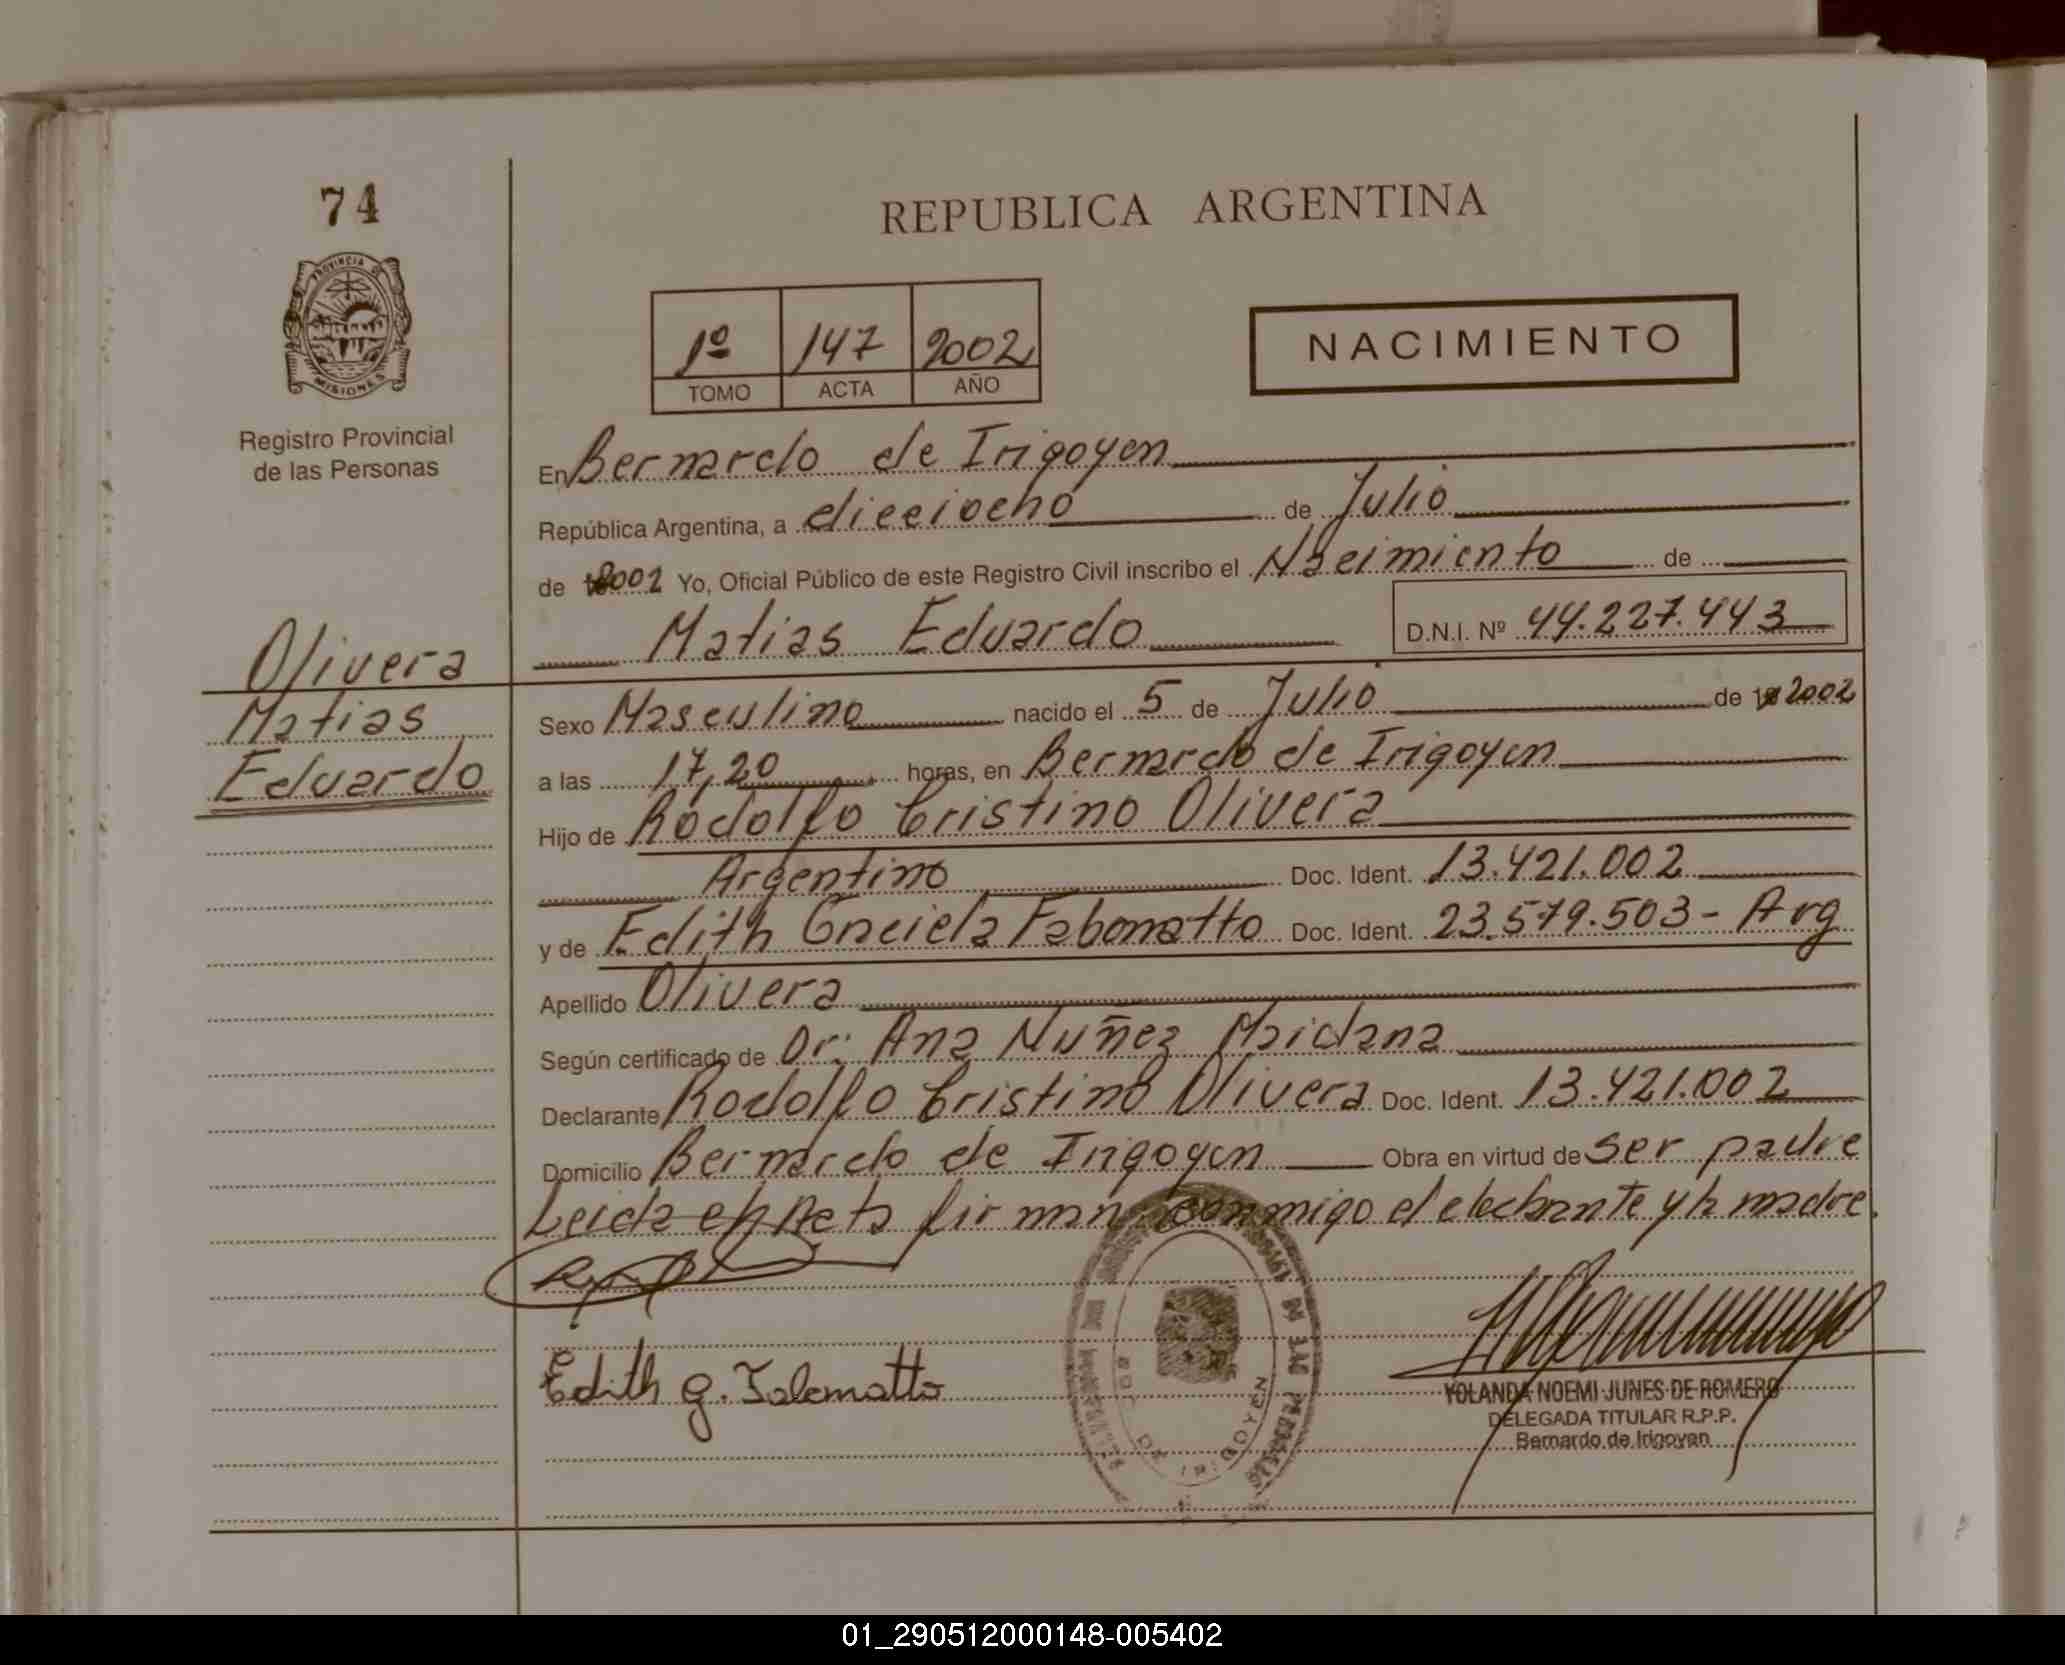 74
REPUBLICA ARGENTINA
PROVINCIA DE
MISIONES
Registro Provincial
de las Personas
1º 147 2002
TOMO ACTA AÑO
NACIMIENTO
En Bernardo de Irigoyen
República Argentina, a dieciocho de Julio
de 2002 Yo, Oficial Público de este Registro Civil inscribo el Nacimiento de
Matias Eduardo D.N.I. Nº 44.227.443
Olivera
Matias
Eduardo
Sexo Masculino nacido el 5 de Julio de 2002
a las 17,20 horas, en Bernardo de Irigoyen
Hijo de Rodolfo Cristino Olivera
Argentino Doc. Ident. 13.421.002
y de Edith Graciela Doc. Ident. 23.579.503 - Arg
Apellido Olivera
Según certificado de Dr: Ana Nuñez Maidana
Declarante Rodolfo Cristino Olivera Doc. Ident. 13.421.002
Domicilio Bernardo de Irigoyen Obra en virtud de ser padre
Leida el Acta firman conmigo el declarante y la madre.
Edith G.
DE IRIGOYEN
YOLANDA NOEMI JUNES DE ROMERO
DELEGADA TITULAR R.P.P.
Bernardo de Irigoyen
01_290512000148-005402